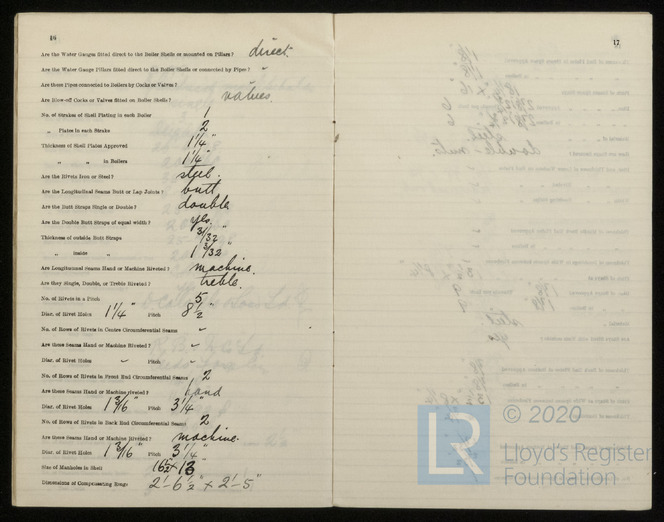 16
Are the Water Gauges fitted direct to the Boiler Shells or mounted on Pillars? direct.
Are the Water Gauge Pillars fitted direct to the Boiler Shells or connected by Pipes? "
Are these Pipes connected to Boilers by Cocks or Valves?
Are Blow-off Cocks or Valves fitted on Boiler Shells? valves.
No. of Strakes of Shell Plating in each Boiler 1
„ Plates in each Strake 2
Thickness of Shell Plates Approved 1 1/4"
„ „ in Boilers 1 1/4"
Are the Rivets Iron or Steel? steel.
Are the Longitudinal Seams Butt or Lap Joints? butt
Are the Butt Straps Single or Double? double
Are the Double Butt Straps of equal width? yes.
Thickness of outside Butt Straps 31/32"
„ inside „ 1 3/32"
Are Longitudinal Seams Hand or Machine Riveted? machine.
Are they Single, Double, or Treble Riveted? treble.
No. of Rivets in a Pitch 5
Diar. of Rivet Holes 1 1/4" Pitch 8 1/2"
No. of Rows of Rivets in Centre Circumferential Seams "
Are these Seams Hand or Machine Riveted? "
Diar. of Rivet Holes " Pitch "
No. of Rows of Rivets in Front End Circumferential Seams 2
Are these Seams Hand or Machine riveted? hand
Diar. of Rivet Holes 1 3/16" Pitch 3 1/4"
No. of Rows of Rivets in Back End Circumferential Seams 2
Are these Seams Hand or Machine Riveted? machine.
Diar. of Rivet Holes 1 3/16" Pitch 3 1/4"
Size of Manholes in Shell 16 x 13
Dimensions of Compensating Rings 2'-6 1/2" x 2'-5"
17
© 2020
LR
Lloyd's Register
Foundation